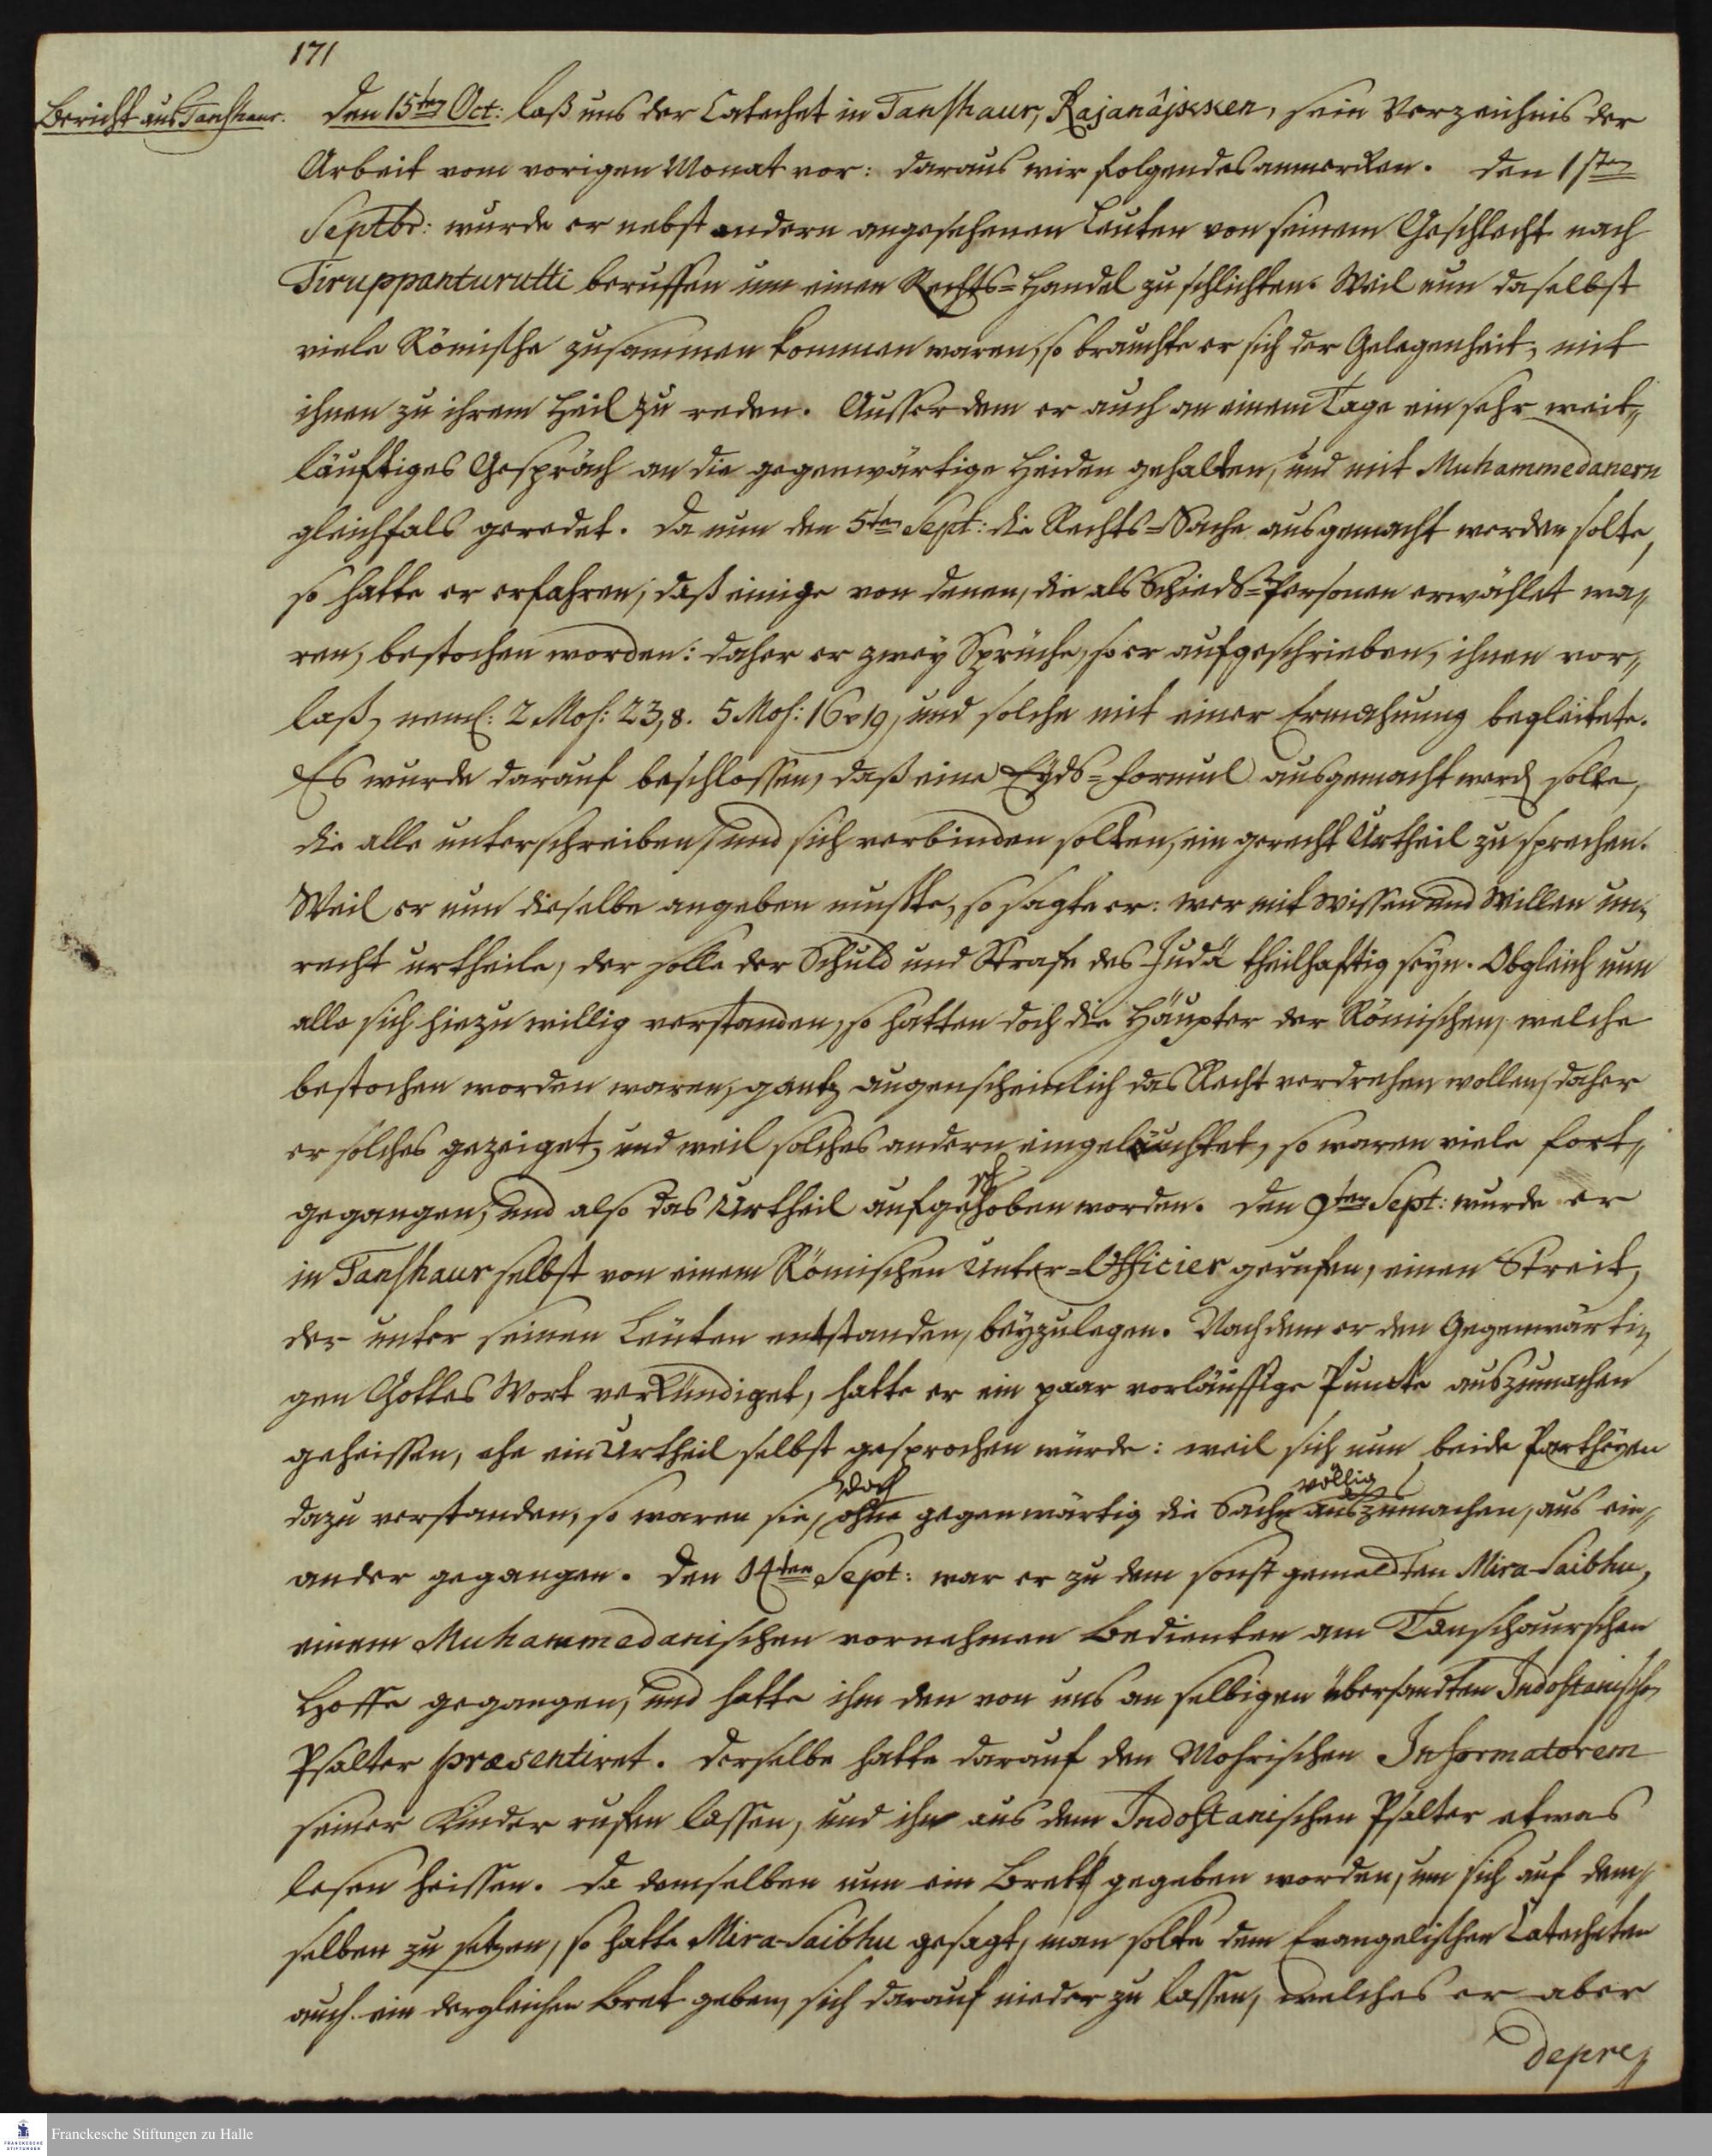 171
Bericht aus Tanshaur.
Den 15ten Oct: laß uns der Catechet in Tanshaur, Rajanâjxxen, sein Verzeichnis der
Arbeit vom vorigen Monat vor: daraus wir folgendes anmercken. Den 1sten
Septbr: wurde er nebst andern angesehenen Leuten von seinem Geschlecht nach
Tiruppanturutti beruffen um einen Rechts=Handel zu schlichten. Weil nun daselbst
viele Römische zusammen kommen waren, so brauchte er sich der Gelegenheit, mit
ihnen zu ihrem Heil zu reden. Ausserdem er auch an einem Tage ein sehr weit„
läuftiges Gespräch an die gegenwärtige Heiden gehalten, und mit Muhammedanern
gleichfals geredet. Da nun den 5ten Sept: die Rechts=Sache ausgemacht werden solte,
so hatte er erfahren, daß einige von denen, die als Schieds=Personen erwählet wa„
ren, bestochen worden: daher er zwey Sprüche, so er aufgeschrieben, ihnen vor„
laß, neml: 2 Mos: 23,8. 5 Mos: 16 v 19, und solche mit einer Ermahnung begleitete.
Es wurde darauf beschlossen, daß eine Eyds=Formul ausgemacht werd solte,
die alle unterschreiben, und sich verbinden solten, ein gerecht Urtheil zu sprechen.
Weil er nun dieselbe angeben muste, so sagte er: wer mit Wissen und Willen un„
recht urtheile, der solle der Schuld und Strafe des Judä theilhaftig seyn. Obgleich nun
alle sich hiezu willig verstanden, so hatten doch die Häupter der Römischen, welche
bestochen worden waren, gantz augenscheinlich das Recht verdrehen wollen, daher
er solches gezeiget, und weil solches andern eingeleuchtet, so waren viele fort„
gegangen, und also das Urtheil aufgeschoben worden. Den 9ten Sept: wurde er
in Tanshaur selbst von einem Römischen Unter=Officier gerufen, einen Streit,
der unter seinen Leuten entstanden, beyzulegen. Nachdem er den Gegenwärti„
gen Gottes Wort verkündiget, hatte er ein paar vorläuffige Puncte auszumachen
geheissen, ehe ein Urtheil selbst gesprochen würde: weil sich nun beide Partheyen
dazu verstanden, so waren sie, doch ohne gegenwärtig die Sache völlig auszumachen, aus ein„
ander gegangen. Den 14ten Sept: war er zu dem sonst gemeldten Mira-Saibhu,
einem Muhammedanischen vornehmen Bedienten am Tanschaurschen
Hoffe gegangen, und hatte ihm den von uns an selbigen übersandten Indostanischen
Psalter præsentiret. Derselbe hatte darauf den Mohrischen Informatorem
seiner Kinder rufen lassen, und ihn aus dem Indostanischen Psalter etwas
lesen heissen. Da demselben nun ein Brett gegeben worden, um sich auf dem„
selben zu setzen, so hatte Mira-Saibhu gesagt, man solte dem Evangelischen Catecheten
auch ein dergleichen Bret geben, sich darauf nieder zu lassen, welches er aber
depre„
Franckesche Stiftungen zu Halle